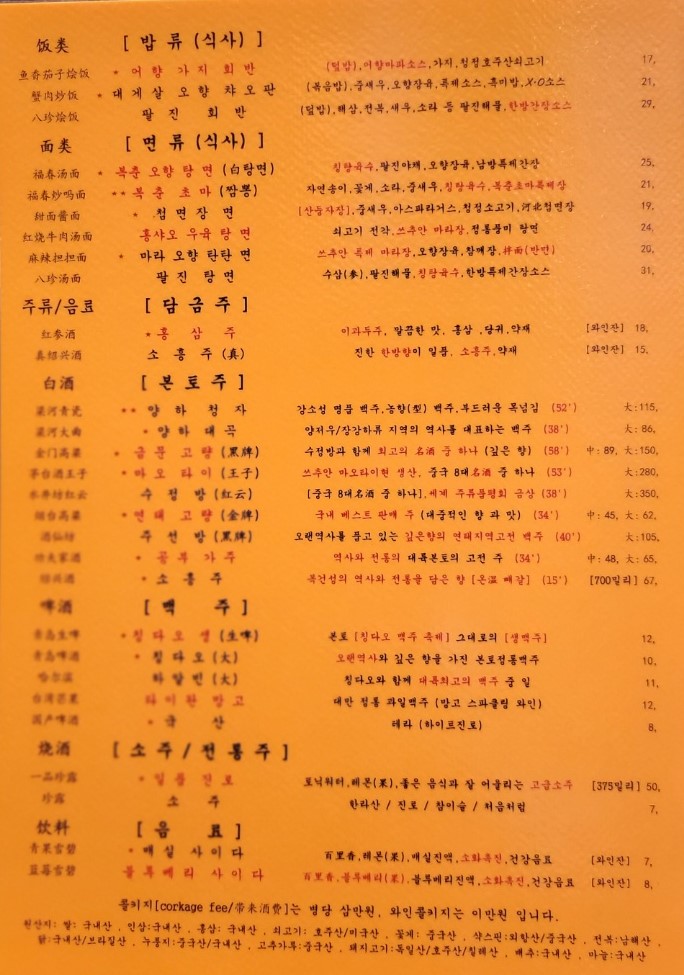 饭类 [ 밥 류 (식사) ]
鱼香茄子烩饭 * 어 향 가 지 회 반 (덮밥),어향마파소스,가지,청정호주산쇠고기 17,
蟹肉炒饭 * 대 게 살 오 향 챠 오 판 (볶음밥),중새우,오향장육,특제소스,흑미밥,X·O소스 21,
八珍烩饭 팔 진 회 반 (덮밥),해삼,전복,새우,소라 등 팔진해물,한방간장소스 29,
面类 [ 면 류 (식사) ]
福春汤面 * 복춘 오향 탕 면 (白탕면) 칭탕육수,팔진야채,오향장육,남방특제간장 25,
福春炒吗面 ** 복 춘 초 마 (짬뽕) 자연송이,꽃게,소라,중새우,칭탕육수,복춘초마특제장 21,
甜面酱面 * 첨 면 장 면 [산동자장],중새우,아스파라거스,청정소고기,河北첨면장 19,
红烧牛肉汤面 홍샤오 우육 탕 면 쇠고기 전각,쓰추안 마라장,정통풍미 탕면 24,
麻辣担担面 * 마라 오향 탄탄 면 쓰추안 특제 마라장,오향장육,참깨장,拌面(반면) 20,
八珍汤面 팔 진 탕 면 수삼(参),팔진해물,칭탕육수,한방특제간장소스 31,
주류/음료 [ 담 금 주 ]
红参酒 * 홍 삼 주 이과두주, 말끔한 맛, 홍삼 ,당귀,약재 [와인잔] 18,
真绍兴酒 소 흥 주 (真) 진한 한방향이 일품, 소흥주,약재 [와인잔] 15,
白酒 [ 본 토 주 ]
梁河青瓷 ** 양 하 청 자 강소성 명품 백주,농향(型) 백주,부드러운 목넘김 (52') 大:115,
梁河大曲 * 양 하 대 곡 양저우/장강하류 지역의 역사를 대표하는 백주 (38') 大: 86,
金门高粱 * 금 문 고 량 (黑牌) 수정방과 함께 최고의 名酒 중 하나 (깊은 향) (58') 中: 89, 大:150,
茅台酒王子 * 마 오 타 이 (王子) 쓰추안 마오타이현 생산, 중국 8대名酒 중 하나 (53') 大:280,
水井坊红云 수 정 방 (红云) [중국 8대名酒 중 하나],세계 주류품평회 금상 (38') 大:350,
烟台高粱 * 연태 고량 (金牌) 국내 베스트 판매 주 (대중적인 향 과 맛) (34') 中: 45, 大: 62,
酒仙坊 주 선 방 (黑牌) 오랜역사를 품고 있는 깊은향의 연태지역고전 백주 (40') 大:105,
功夫家酒 * 공 부 가 주 역사와 전통의 대륙본토의 고전 주 (34') 中: 48, 大: 65,
绍兴酒 * 소 흥 주 복건성의 역사와 전통을 담은 향 [온溫 빼갈] (15') [700밀리] 67,
啤酒 [ 맥 주 ]
青岛生啤 * 칭 다 오 생 (生啤) 본토 [칭다오 맥주 축제] 그대로의 [생맥주] 12,
青岛啤酒 * 칭 다 오 (大) 오랜역사와 깊은 향을 가진 본토정통맥주 10,
哈尔滨 하 얼 빈 (大) 칭다오와 함께 대륙최고의 맥주 중 일 11,
台湾芒果 타 이 완 망 고 대만 정통 과일맥주 (망고 스파클링 와인) 12,
国产啤酒 * 국 산 테라 (하이트진로) 8,
烧酒 [ 소 주 / 전 통 주 ]
一品珍露 * 일 품 진 로 토닉워터,레몬(果),좋은 음식과 잘 어울리는 고급소주 [375밀리] 50,
珍露 소 주 한라산 / 진로 / 참이슬 / 처음처럼 7,
饮料 [ 음 료 ]
青果雪碧 * 매실 사이다 百里香,레몬(果),매실진액,소화촉진,건강음료 [와인잔] 7,
蓝莓雪碧 블루베리 사이다 百里香,블루베리(果),블루베리진액,소화촉진,건강음료 [와인잔] 8,
콜키지[corkage fee/带来酒费]는 병당 삼만원, 와인콜키지는 이만원 입니다.
원산지: 쌀: 국내산 , 인삼:국내산 , 홍삼: 국내산 , 쇠고기: 호주산/미국산 , 꽃게: 중국산 , 샥스핀:외항산/중국산 , 전복:남해산 ,
닭:국내산/브라질산 , 누룽지:중국산/국내산 , 고추가루:중국산 , 돼지고기:독일산/호주산/칠레산 , 배추:국내산 , 마늘:국내산